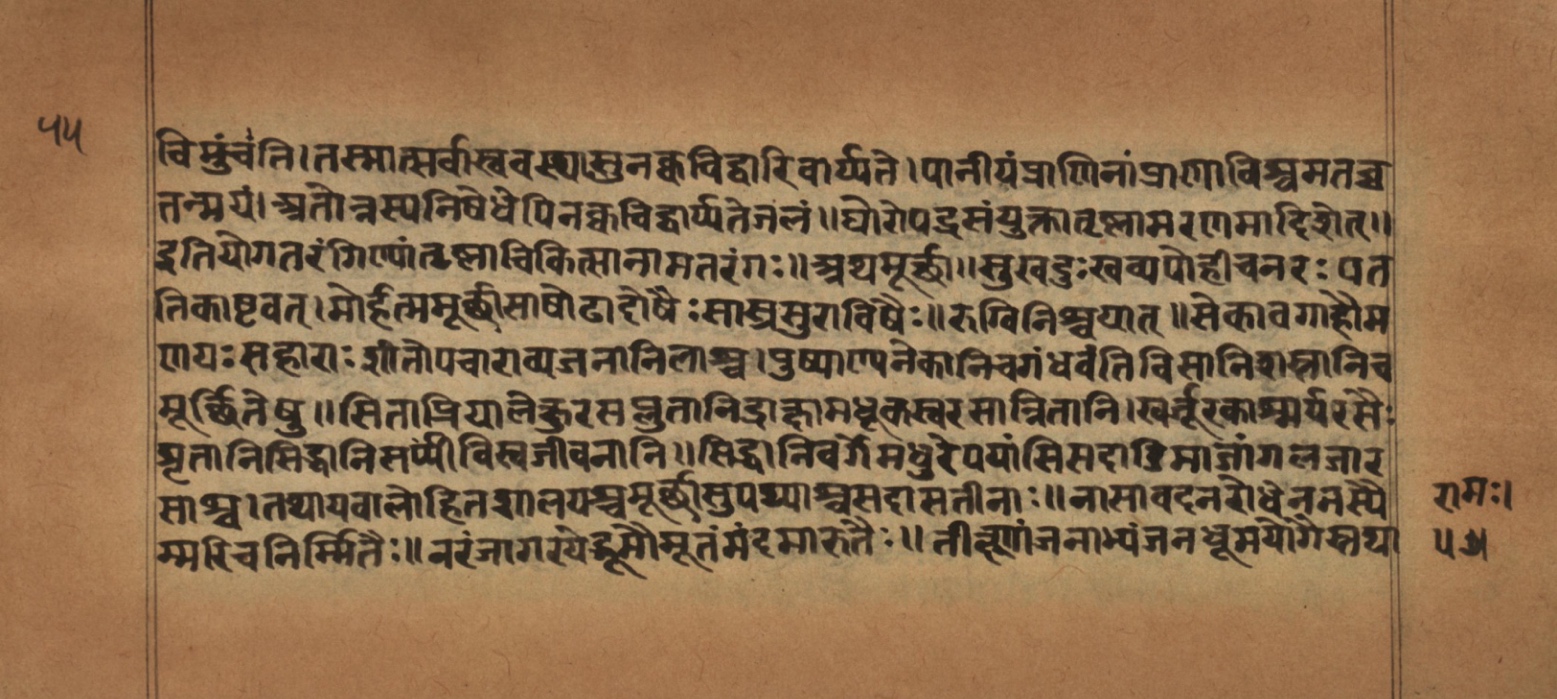 ५५
विमुंचंति।तस्मात्सर्वास्ववस्थासुनक्वचिद्वारिवार्य्यते।पानीयंप्राणिनांप्राणाविश्वमतच्च
तन्मयं।अतोन्नस्यनिषेधेपिनक्वचिद्वार्य्यतेजलं॥घोरोपद्रसंयुक्तातृष्णामरणमादिशेत्॥
इतियोगतरंगिण्यांतृष्णाचिकित्सानामतरंगः॥अथमूर्छा॥सुखदुःखव्यपोहाचनरः पत
तिकाष्टवत्।मोहंत्ममूर्छासाषोढादोषैःसास्रसुराविषैः॥रुग्विनिश्चयात्॥सेकावगाहौम
णयःसहाराःशीतोपचाराव्यजनानिलाश्च।पुष्पाण्यनेकानिचगंधवंतिविसानिशस्तानिच
मूर्छितेषु॥सिताप्रियालेक्षुरसप्लुतानिद्राक्षामधूकस्वरसान्वितानि।खर्जूरकाश्मर्यरसैः
शृतानिसिद्धानिसर्पींविस्वजीवनानि॥सिद्धानिवर्गेमधुरेपयांसिसदाडिमाजांगलजार
साश्च।तथायवालोहितशालयश्चमूर्छासुपथ्याश्चसदासतीनाः॥नासावदनरोधेननस्यै
र्म्मरिचनिर्म्मितैः॥नरंजागरयेद्भूमौमूतंमंदमारुतैः॥तीक्ष्णांजनाभ्यंजनधूमयोगैस्तथा
रामः।
५५